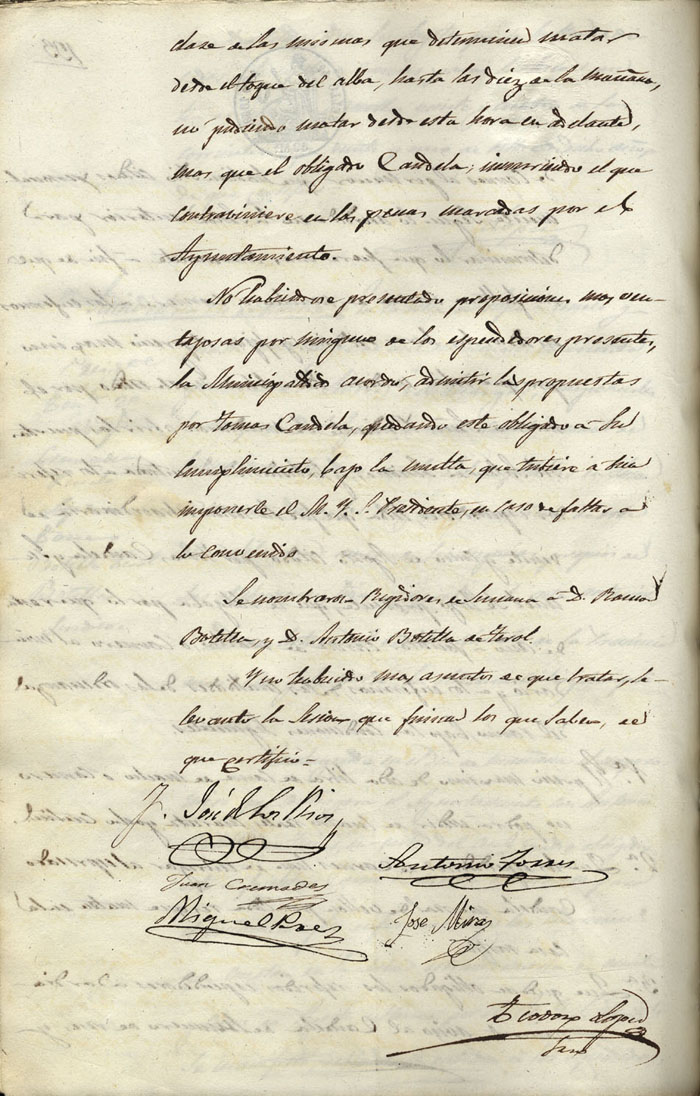 clase de las mismas que determinen matar
desde el toque del alba, hasta las diez de la mañana,
no pudiendo matar desde esta hora en adelante,
mas que el obligado Candela; incurriendo el que
contraviniere en las penas marcadas por el
Ayuntamiento.
No habiendose presentado proposiciones mas ven-
tajosas por ninguno de los espendedores presentes,
la Municipalidad acordó, admitir las propuestas
por Tomas Candela, quedando este obligado a su
cumplimiento, bajo la multa, que tubiere a bien
imponerle el M. Y. S. Presidente, en caso de faltar a
lo convenido
Se nombraron Regidores de Semana a D. Ramon
Botella, y D. Antonio Botella de Ferol.
Y no habiendo mas asuntos de que tratar, se
levanto la Sesion que firman los que saben, de
que certifico=
José de los Rios
Antonio Torres
Juan Cremades
Miguel Paez
Jose Mira
Teodoro Lopez